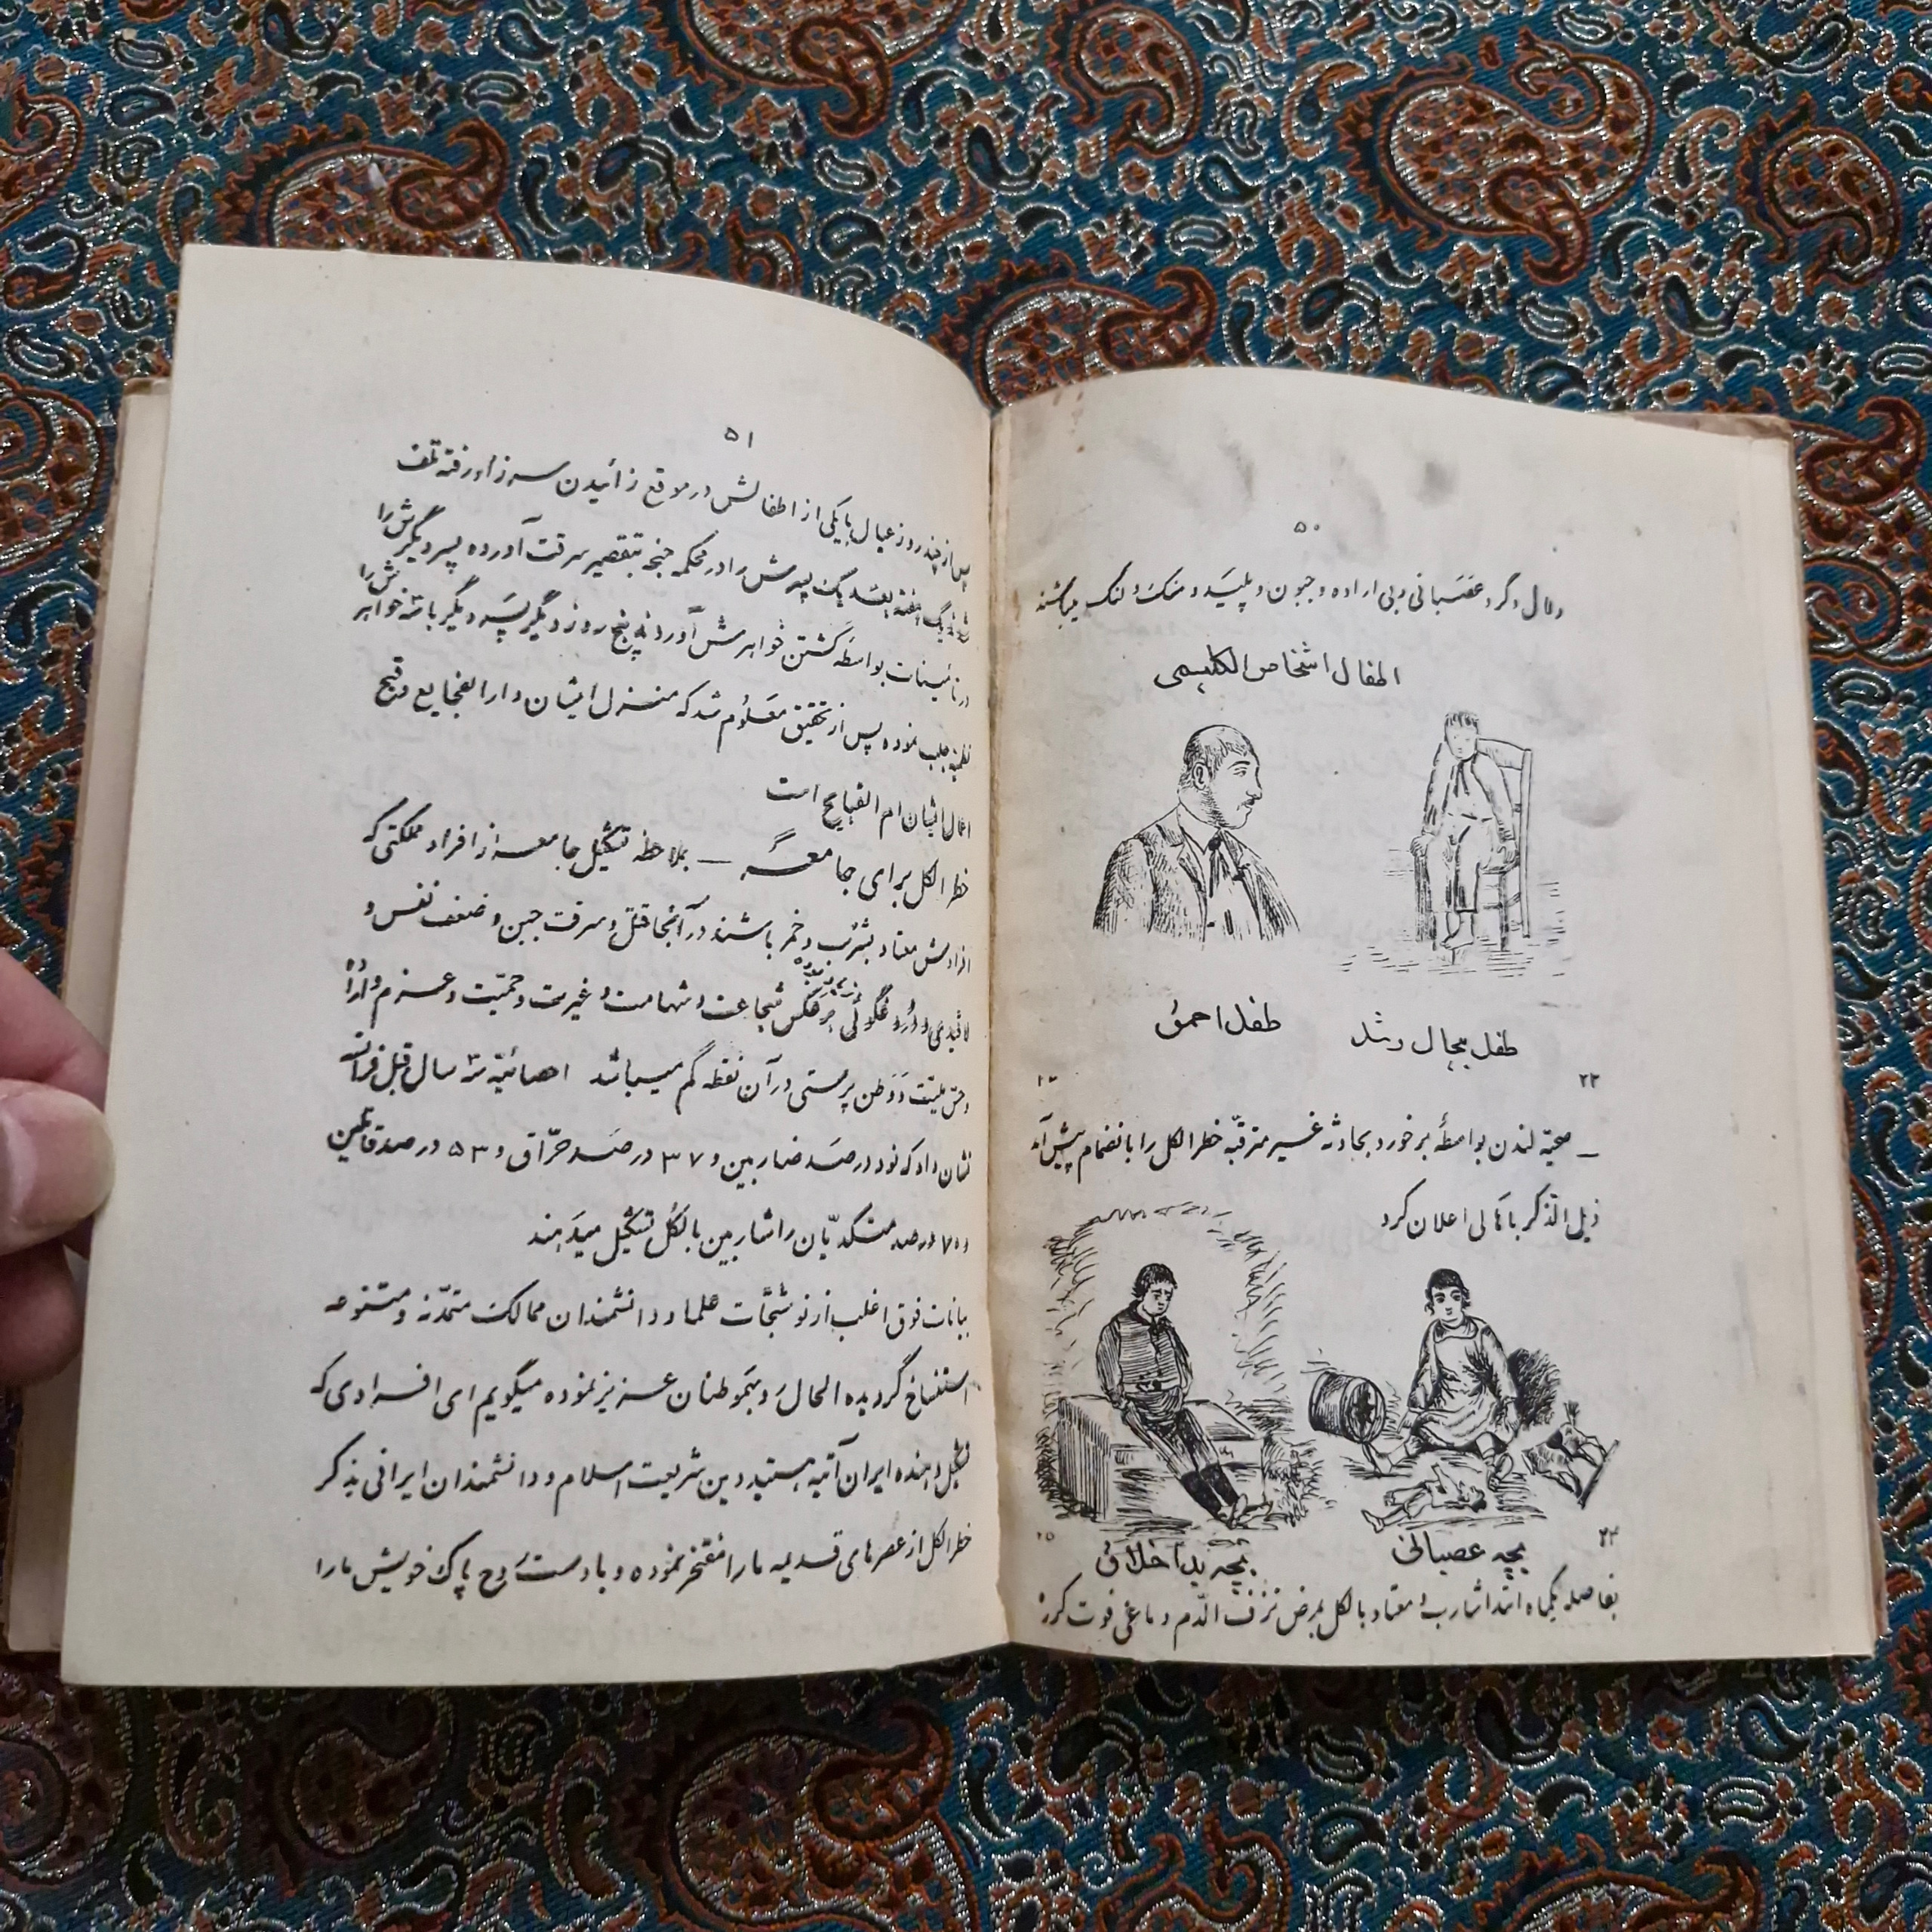 ۵۰
و لال و کر و عصبانی و بی اراده و جبون و پلید و منگ و لنگ میباشند
اطفال اشخاص الکلیمی
طفل بیحال رشد
طفل احمق
۲۳
— صحیّه لندن بواسطهٔ برخورد بحادثه غیر مترقبّه خطر الکل را بانضمام پیش آمد
ذیل الذکر باهالی اعلان کرد
بچه عصبانی
بچه بد اخلاق
۲۵
بفاصله یکماه ابتدا شارب معتاد بالکل بمرض نزف الدّم دماغی فوت کرد
۵۱
پس از چند روز عیال با یکی از اطفالش در موقع زائیدن سر زا رفته تلف
هفته بعد یک پسرش را در محکمه جنحه بتقصیر سرقت آورده پسر دیگرش را
بواسطه کشتن خواهرش آورد پنج روز دیگر پسر دیگر با خواهرش را
جلب نموده پس از تحقیق معلوم شد که منزل ایشان دارالفجایع و قبح
اعمال ایشان ام القبایح است
خطر الکل برای جامعه — بملاحظه تشکیل جامعه از افراد مملکتی که
افرادش معتاد بشرب خمر باشند در آنجا قتل و سرقت جبن و ضعف نفس و
لاقیدی و دروغگوئی برعکس شجاعت و شهامت و غیرت و حمیّت و عزم و اراده
و حسّ ملیّت و وطن پرستی در آن نقطه گم میباشد احصائیّه سال قبل فرانسه
نشان داد که نود درصد ضاربین و ۳۷ درصد حرّاق و ۵۳ درصد قاتلین
و ۷۰ درصد متکدیّان را شاربین بالکل تشکیل میدهند
بیانات فوق اغلب از نوشتجات علما و دانشمندان ممالک متمدّنه و متنوعه
استنساخ گردیده الحال رو بهموطنان عزیز نموده میگویم ای افرادی که
تشکیل دهنده ایران آتیه هستید دین شریعت اسلام و دانشمندان ایرانی بذکر
خطر الکل از عصرهای قدیمه ما را مفتخر نموده و با دست روح پاک خویش ما را